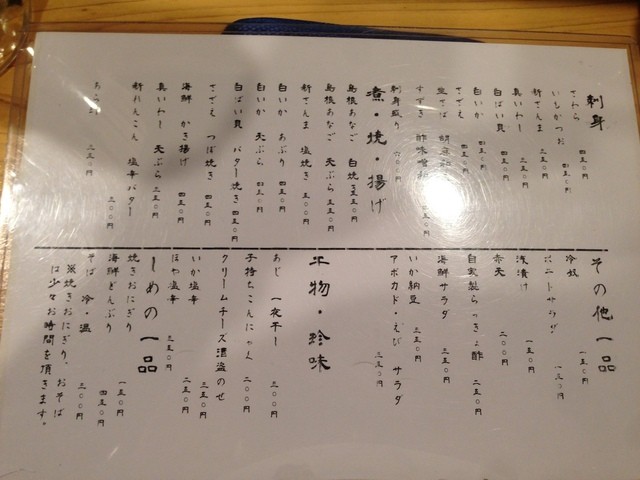 刺身
さわら 四五〇円
いなかつお 三五〇円
新さんま 三五〇円
真いわし 三五〇円
白ばい貝 四五〇円
白いか 四五〇円
さざえ
刺身盛り
煮・焼・揚げ
島根あなご 白焼き
島根あなご 天ぷら 五五〇円
新さんま 塩焼き 三五〇円
白いか あぶり 四五〇円
白いか 天ぷら 四五〇円
白ばい貝 バター焼き 四五〇円
さざえ つぼ焼き 四五〇円
海鮮 かき揚げ 四五〇円
真いわし 天ぷら 三五〇円
新れんこん 塩辛バター 三〇〇円
三五〇円
その他一品
冷奴 一五〇円
浅漬け 一五〇円
赤天 二〇〇円
自家製らっきょ酢 二五〇円
海鮮サラダ 三五〇円
いか納豆 三五〇円
アボカド・えび サラダ 三五〇円
干物・珍味
あじ 一夜干し 三〇〇円
子持ちこんにゃく 二〇〇円
クリームチーズ酒盗のせ 三五〇円
いか塩辛 二五〇円
ほや塩辛 三五〇円
しめの一品
焼きおにぎり 一五〇円
海鮮どんぶり 四五〇円
そば 冷・温 三〇〇円
※焼きおにぎり、おそば
は少々お時間を頂きます。